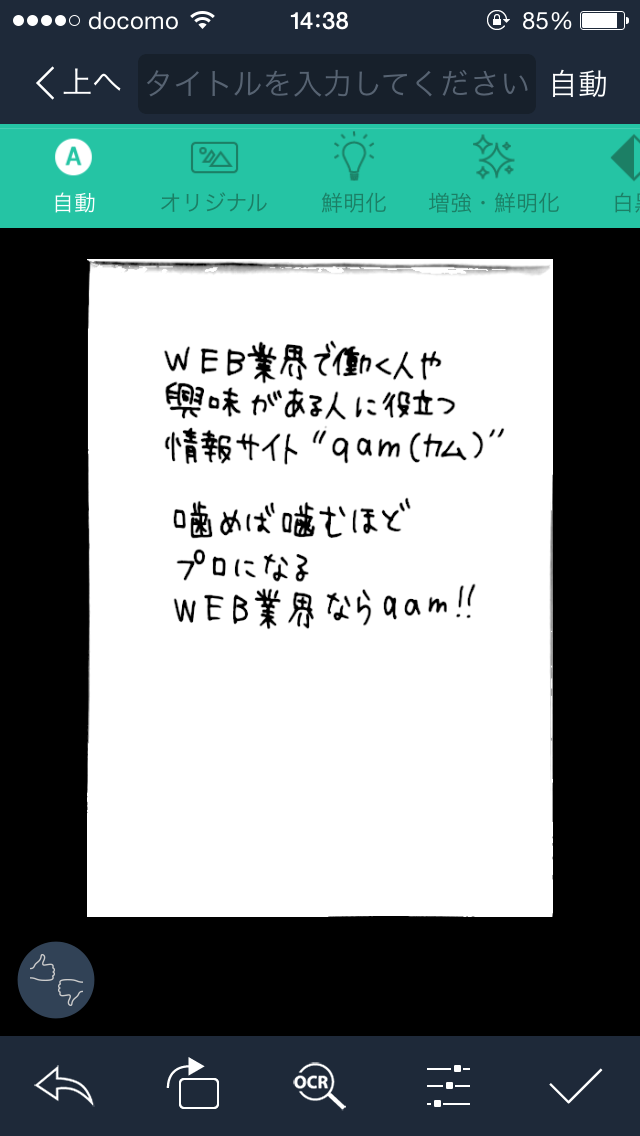 docomo 14:38 85%
上へ タイトルを入力してください 自動
A
自動 オリジナル 鮮明化 増強・鮮明化
WEB業界で働く人や
興味がある人に役立つ
情報サイト"qam(カム)"
噛めば噛むほど
プロになる
WEB業界ならqam!!
OCR